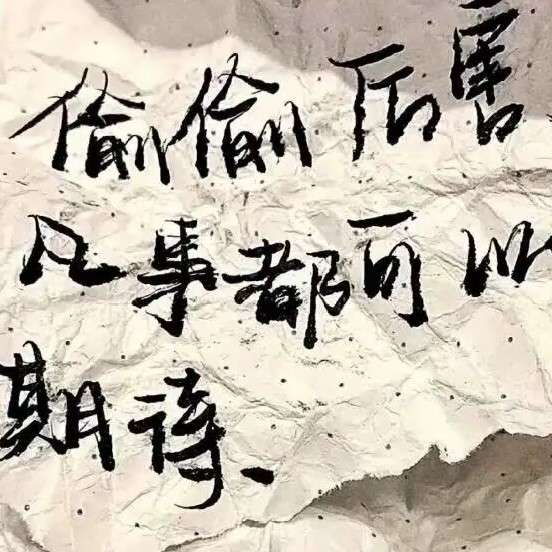 偷偷厉害
凡事都可以
期待、